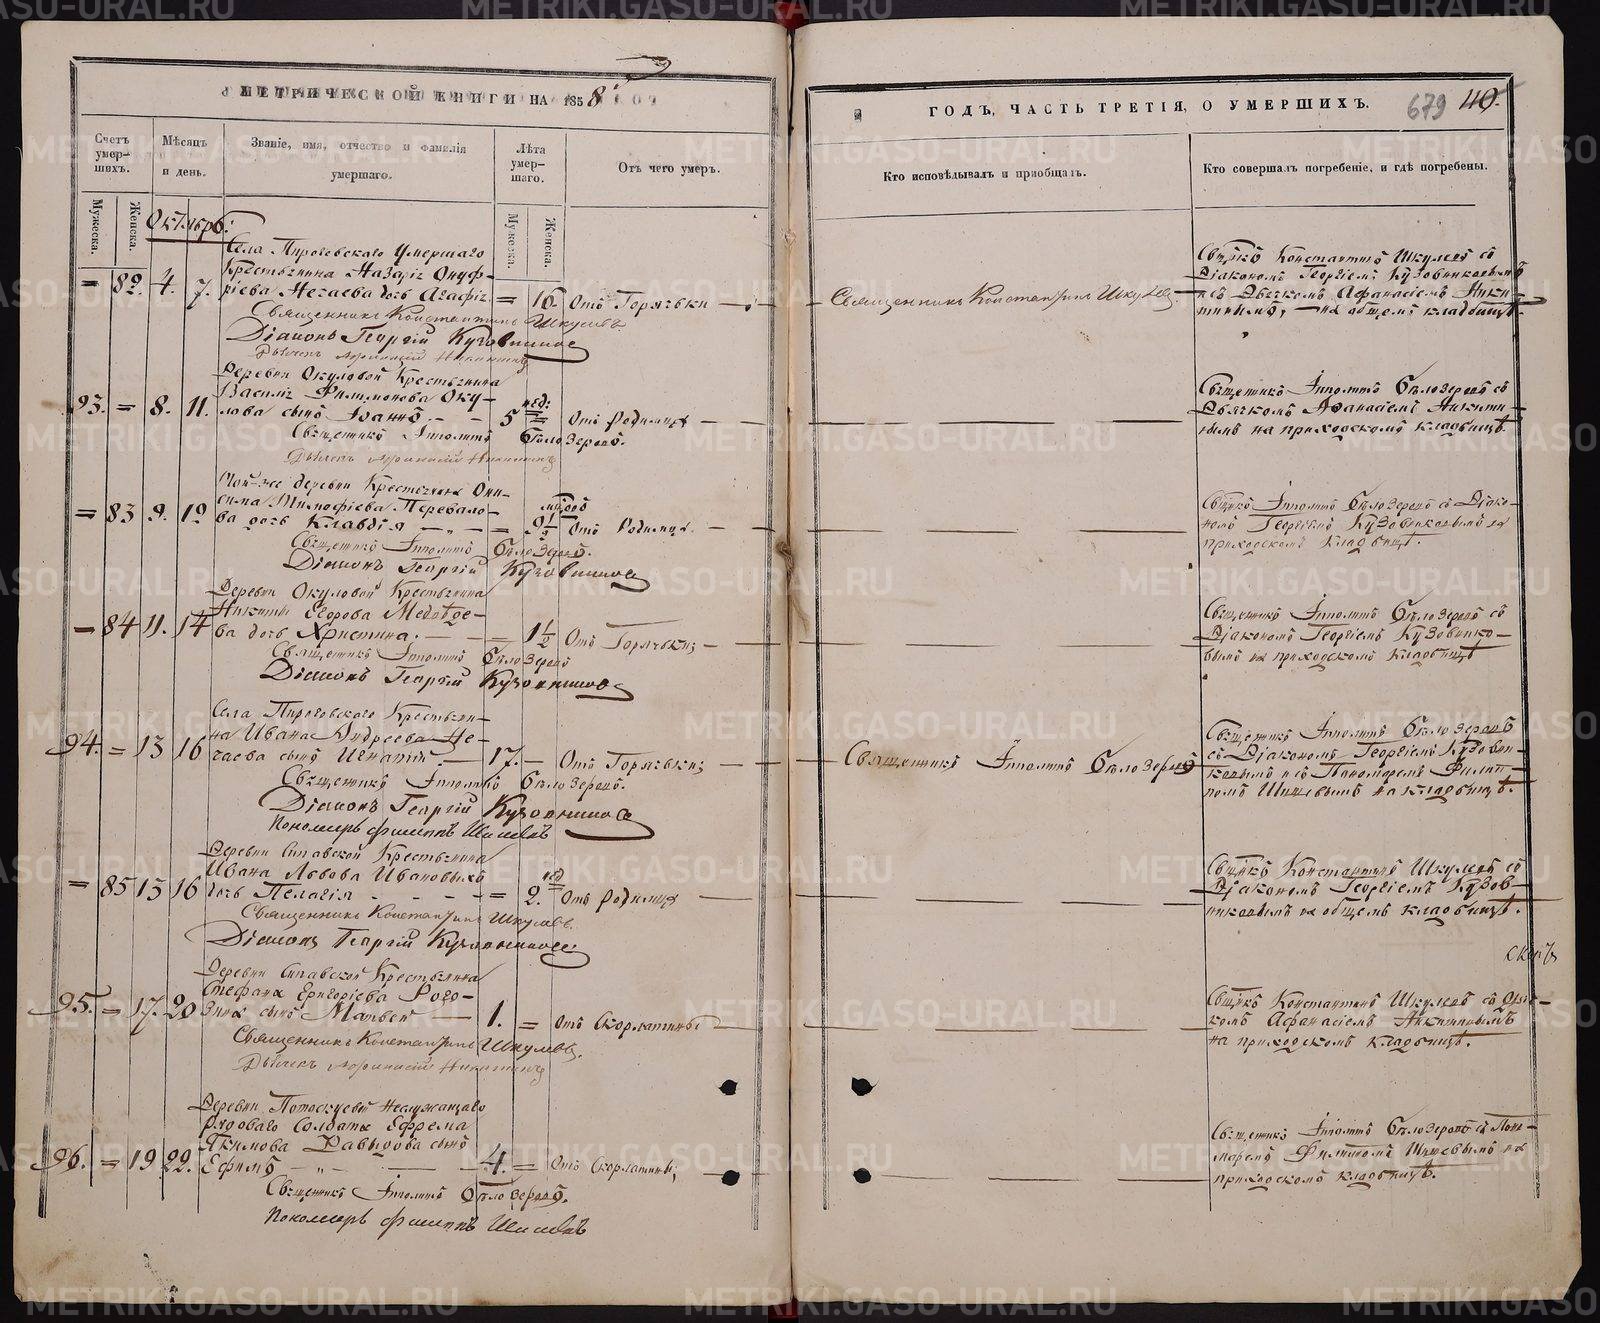 МЕТРИЧЕСКОЙ КНИГИ НА 1858
ГОДЪ, ЧАСТЬ ТРЕТІЯ, О УМЕРШИХЪ.
679 40.
Счетъ умер-шихъ.
Мѣсяцъ и день.
Званіе, имя, отчество и фамилія умершаго.
Лѣта умер-шаго.
Отъ чего умеръ.
Кто исповѣдывалъ и пріобщалъ.
Кто совершалъ погребеніе, и гдѣ погребены.
Мужеска.
Женска.
Мужеска.
Женска.
Октябрь:
Села Умершаго
Крестьянина Назарія Онуф-
ріева Нечаева дочь Агафія
= 82. 4. 7. = 16 Отъ Горячьки
Священникъ Константинъ Шкулевъ
Священникъ Константинъ Шкулевъ.
Діаконъ Георгій Кузовниковъ
Дьячекъ Афанасій Никитинъ
Свщ҃нкъ Константинъ Шкулевъ съ
Діакономъ Георгіемъ Кузовниковымъ
и съ Дьячкомъ Афанасіемъ Ники-
тинымъ, на общемъ кладбищѣ.
Деревни Окуловой Крестьянина
Василія Филимонова Оку-
лова сынъ Іоаннъ
93. = 8. 11. 5 нед: = Отъ Родимца
Священникъ Ипполитъ Бѣлозеровъ.
Дьячекъ Афанасій Никитинъ
Священникъ Ипполитъ Бѣлозеровъ съ
Дьячкомъ Афанасіемъ Никити-
нымъ на приходскомъ кладбищѣ.
Той-же деревни Крестьянина Они-
сима Тимофѣева Перевало-
ва дочь Клавдія
= 83 9. 12 = Отъ Родимца
Священникъ Ипполитъ Бѣлозеровъ.
Діаконъ Георгій Кузовниковъ
Свщ҃нкъ Ипполитъ Бѣлозеровъ съ Діако-
номъ Георгіемъ Кузовниковымъ на
приходскомъ кладбищѣ.
Деревни Окуловой Крестьянина
Никиты Егорова Медвѣде-
ва дочь Христина.
= 84 11. 14 = 1½ Отъ Горячьки
Священникъ Ипполитъ Бѣлозеровъ
Діаконъ Георгій Кузовниковъ
Священникъ Ипполитъ Бѣлозеровъ съ
Діакономъ Георгіемъ Кузовнико-
вымъ на приходскомъ кладбищѣ
Села Крестьяни-
на Ивана Андреева Не-
чаева сынъ Игнатій.
94. = 13 16 17. Отъ Горячьки
Священникъ Ипполитъ Бѣлозеровъ
Священникъ Ипполитъ Бѣлозеровъ.
Діаконъ Георгій Кузовниковъ
Пономарь Филиппъ Шишевъ
Священникъ Ипполитъ Бѣлозеровъ
съ Діакономъ Георгіемъ Кузовни-
ковымъ и съ Пономаремъ Филип-
помъ Шишевымъ на кладбищѣ.
Деревни Крестьянина
Ивана Львова Ивановыхъ
дочь Пелагія
= 85 15 16 = 2. нед Отъ Родимца
Священникъ Константинъ Шкулевъ.
Діаконъ Георгій Кузовниковъ
Свщ҃нкъ Константинъ Шкулевъ съ
Діакономъ Георгіемъ Кузов-
никовымъ на общемъ кладбищѣ.
Деревни Крестьянина
Стефана Григоріева Рого-
зина сынъ Матвей
95. = 17. 20 1. = Отъ Скорлатины
Священникъ Константинъ Шкулевъ.
Дьячекъ Афанасій Никитинъ
Свщ҃нкъ Константинъ Шкулевъ съ Дьяч-
комъ Афанасіемъ Никитинымъ
на приходскомъ кладбищѣ.
Деревни Потоскуевой Неслужащаго
Рядоваго Солдата Ефрема
Якимова Давыдова сынъ
Ефимъ
96. = 19 22. 4. = Отъ Скорлатины
Священникъ Ипполитъ Бѣлозеровъ.
Пономарь Филиппъ Шишевъ
Священникъ Ипполитъ Бѣлозеровъ съ Поно-
маремъ Филиппомъ Шишевымъ на
приходскомъ кладбищѣ.
METRIKI.GASO-URAL.RU